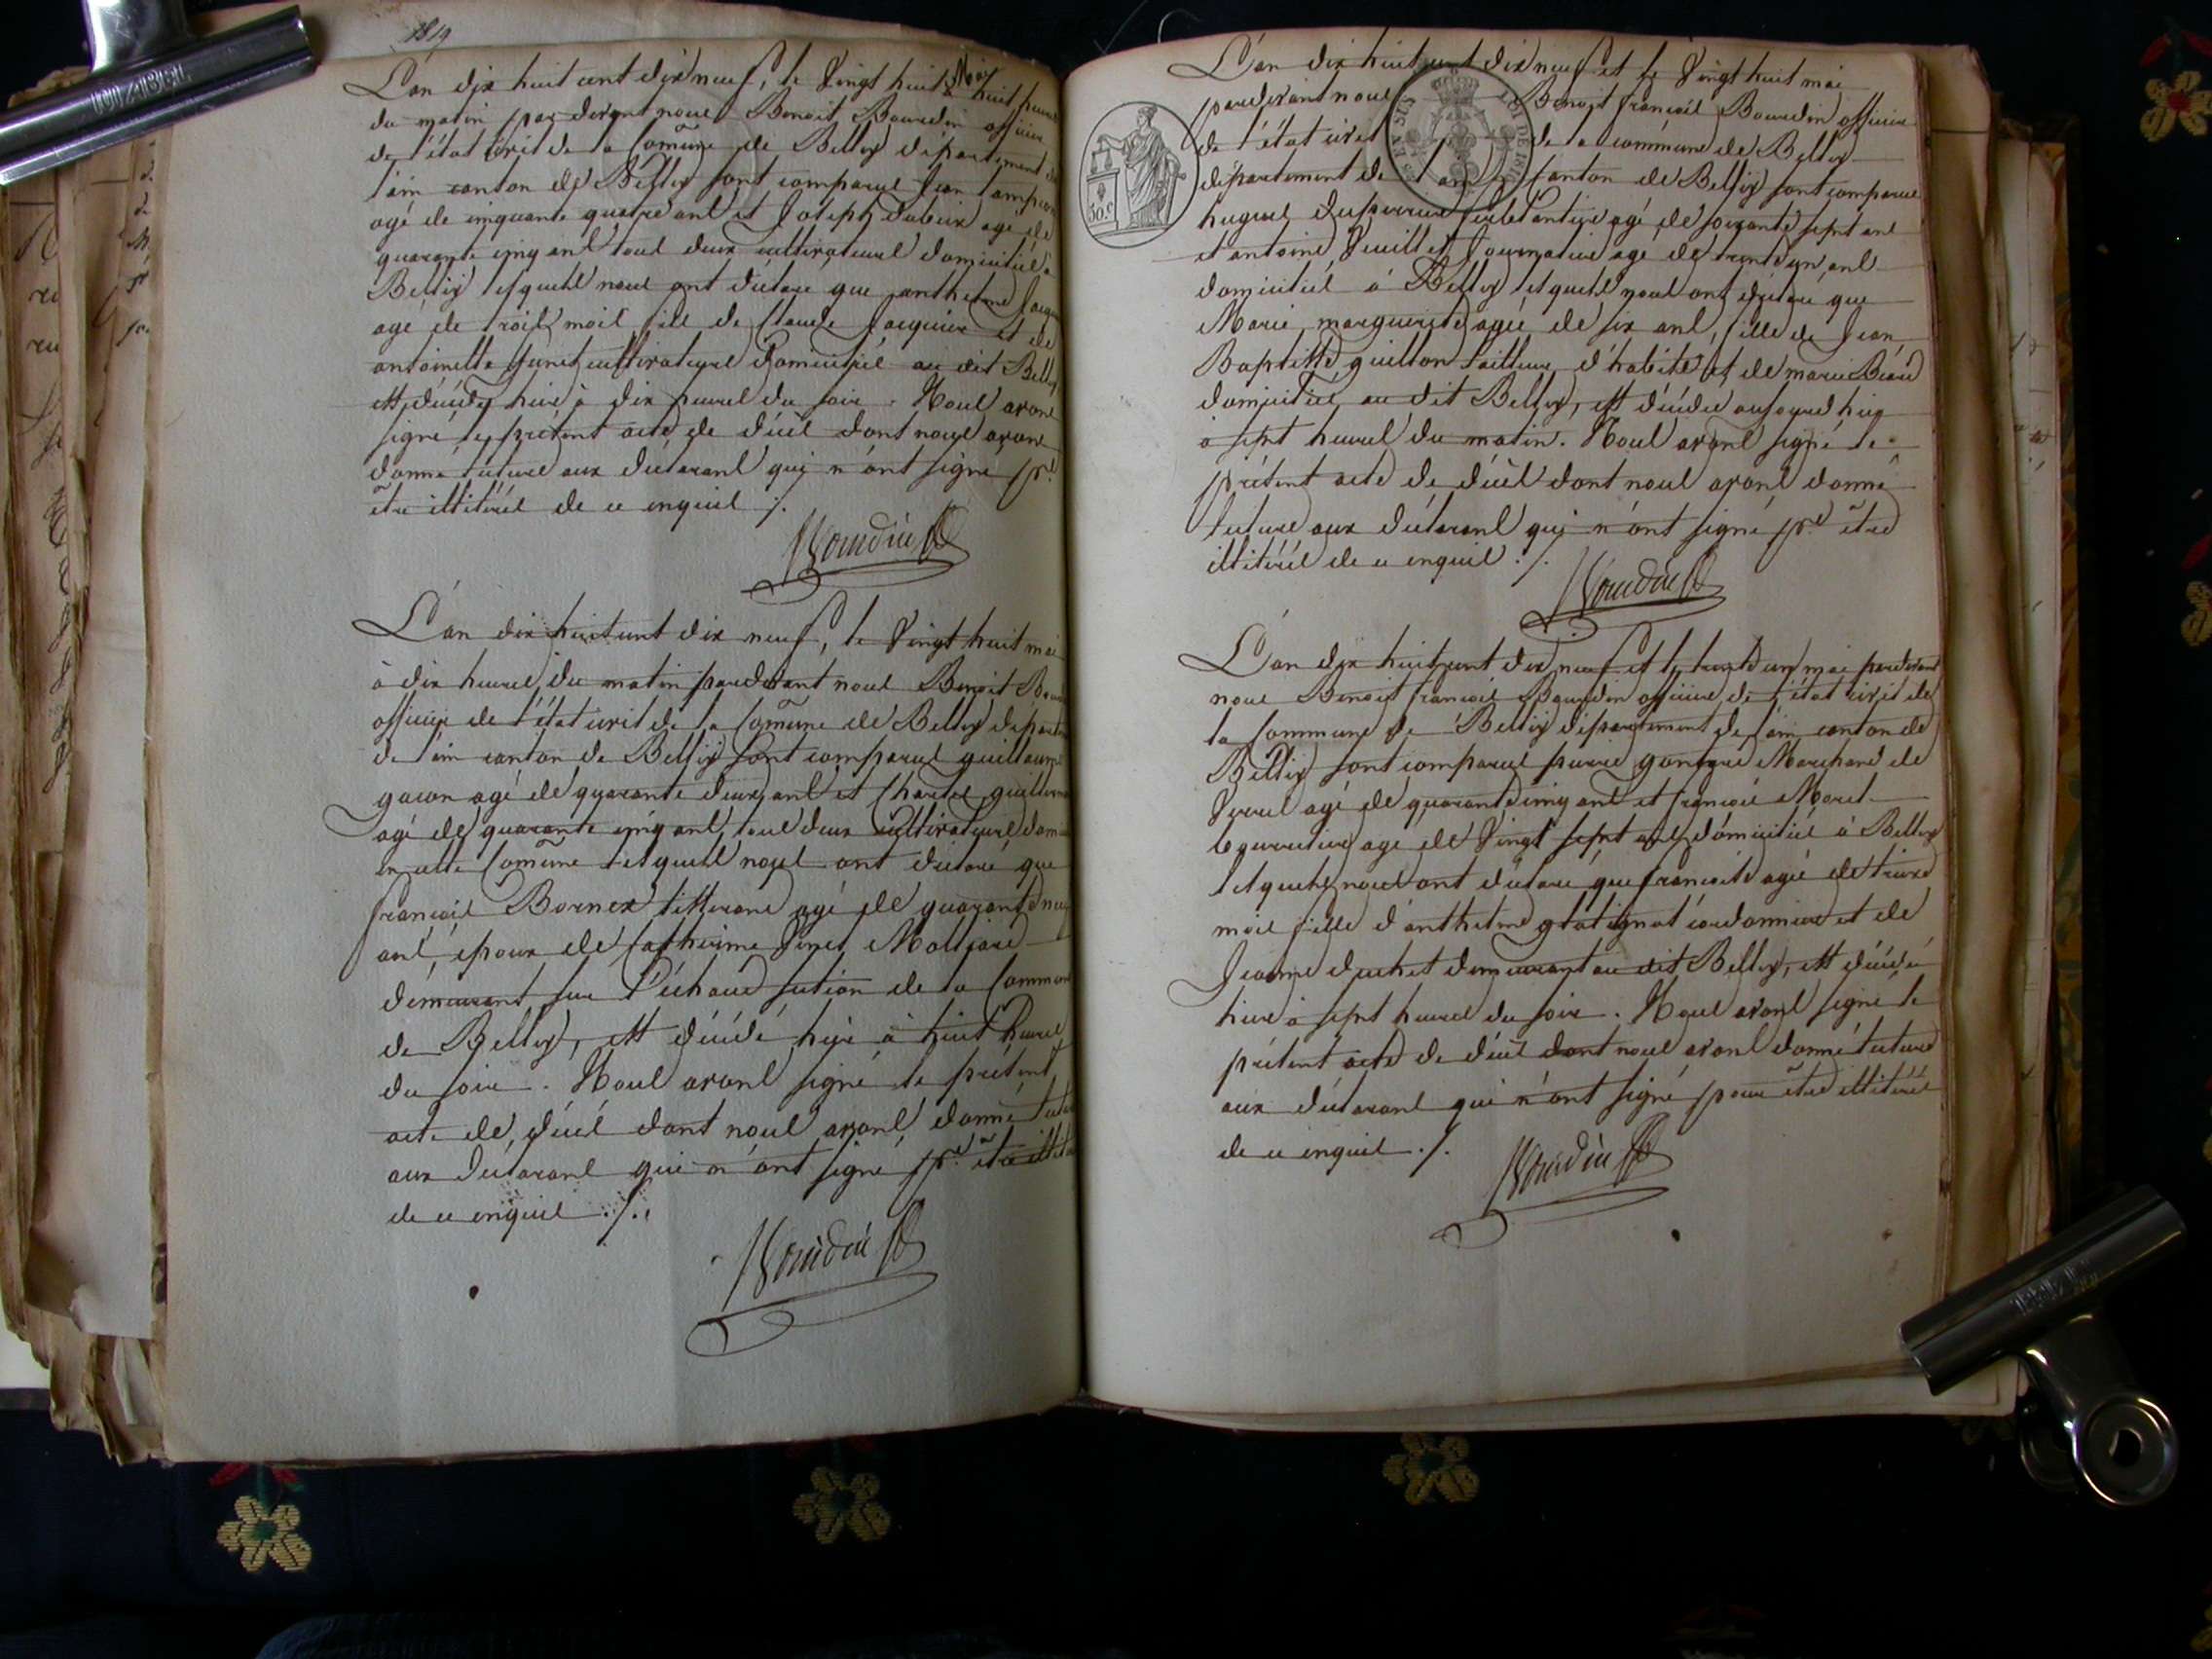 1819
L'an dix huit cent dix neuf, le Vingt huit Mai huit heures
du matin par devant nous Benoit Bourdin officier
de l'état civil de la Comûne de Belley département de
l'ain canton de Belley sont comparus Jean
agé de cinquante quatre ans et Joseph dubeux agé de
quarante cinq ans tous deux cultivateurs domiciliés à
Belley lesquels nous ont déclaré que anthelme
agé de trois mois fils de Claude Jacquier et de
antoinette cultivateurs domiciliés au dit Belley
est décédé hier à dix heures du soir. Nous avons
signé le présent acte de décès dont nous avons
donné lecture aux déclarans qui n'ont signé pr.
être illitérés de ce enquis ./.
Bourdin
L'an dix huit cent dix neuf, le Vingt huit mai
à dix heures du matin pardevant nous Benoit
officier de l'état civil de la Comûne de Belley
de l'ain canton de Belley sont comparus guillaume
gacon agé de quarante deux ans et Charles
agé de quarante cinq ans, tous deux cultivateurs
en cette Comûne lesquels nous ont déclaré que
françois Bornex tisserand agé de quarante neuf
ans, epoux de Catherine
demeurant sur l'échaud section de la Commune
de Belley, est décédé hier à huit heures
du soir. Nous avons signé le présent
acte de décès dont nous avons donné
aux déclarans qui n'ont signé pr. être
de ce enquis ./.
Bourdin
L'an dix huit cent dix neuf et le Vingt huit mai
pardevant nous Benoit françois Bourdin officier
de l'état civil de la commune de Belley
département de l'ain canton de Belley sont comparus
hugues duperrier agé de soixante sept ans
et antoine Vuillet Journalier agé de trente un ans
domiciliés à Belley lesquels nous ont déclaré que
Marie marguerite agée de six ans, fille de Jean
Baptiste guillon tailleur d'habits et de marie
domiciliés au dit Belley, est décédée aujourd'hui
à sept heures du matin. Nous avons signé le
présent acte de décès dont nous avons donné
lecture aux déclarans qui n'ont signé pr. être
illitérés de ce enquis ./.
Bourdin
30.c
EN SUS
LOI DE 1816
L'an dix huit cent dix neuf et le trente un mai pardevant
nous Benoit françois Bourdin officier de l'état civil de
la Commune de Belley département de l'ain canton de
Belley sont comparus pierre gonfard Marchand de
Verres agé de quarante cinq ans et françois Moret
agé de Vingt sept ans domiciliés à Belley
lesquels nous ont déclaré que françoise agée de treize
mois fille d'anthelme cordonnier et de
Jeanne duchet demeurant au dit Belley, est décédée
hier à sept heures du soir. Nous avons signé le
présent acte de décès dont nous avons donné lecture
aux déclarans qui n'ont signé pour être illitérés
de ce enquis ./.
Bourdin